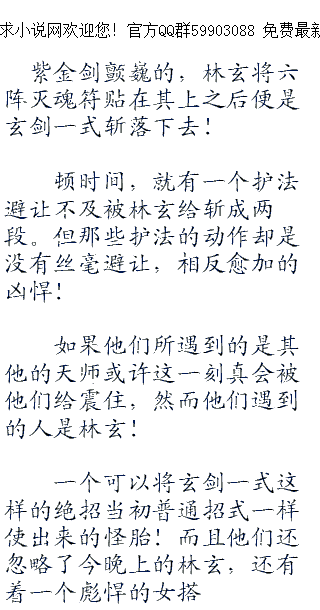 求小说网欢迎您！官方QQ群59903088 免费最新
紫金剑颤巍的，林玄将六
阵灭魂符贴在其上之后便是
玄剑一式斩落下去！
顿时间，就有一个护法
避让不及被林玄给斩成两
段。但那些护法的动作却是
没有丝毫避让，相反愈加的
凶悍！
如果他们所遇到的是其
他的天师或许这一刻真会被
他们给震住，然而他们遇到
的人是林玄！
一个可以将玄剑一式这
样的绝招当初普通招式一样
使出来的怪胎！而且他们还
忽略了今晚上的林玄，还有
着一个彪悍的女搭